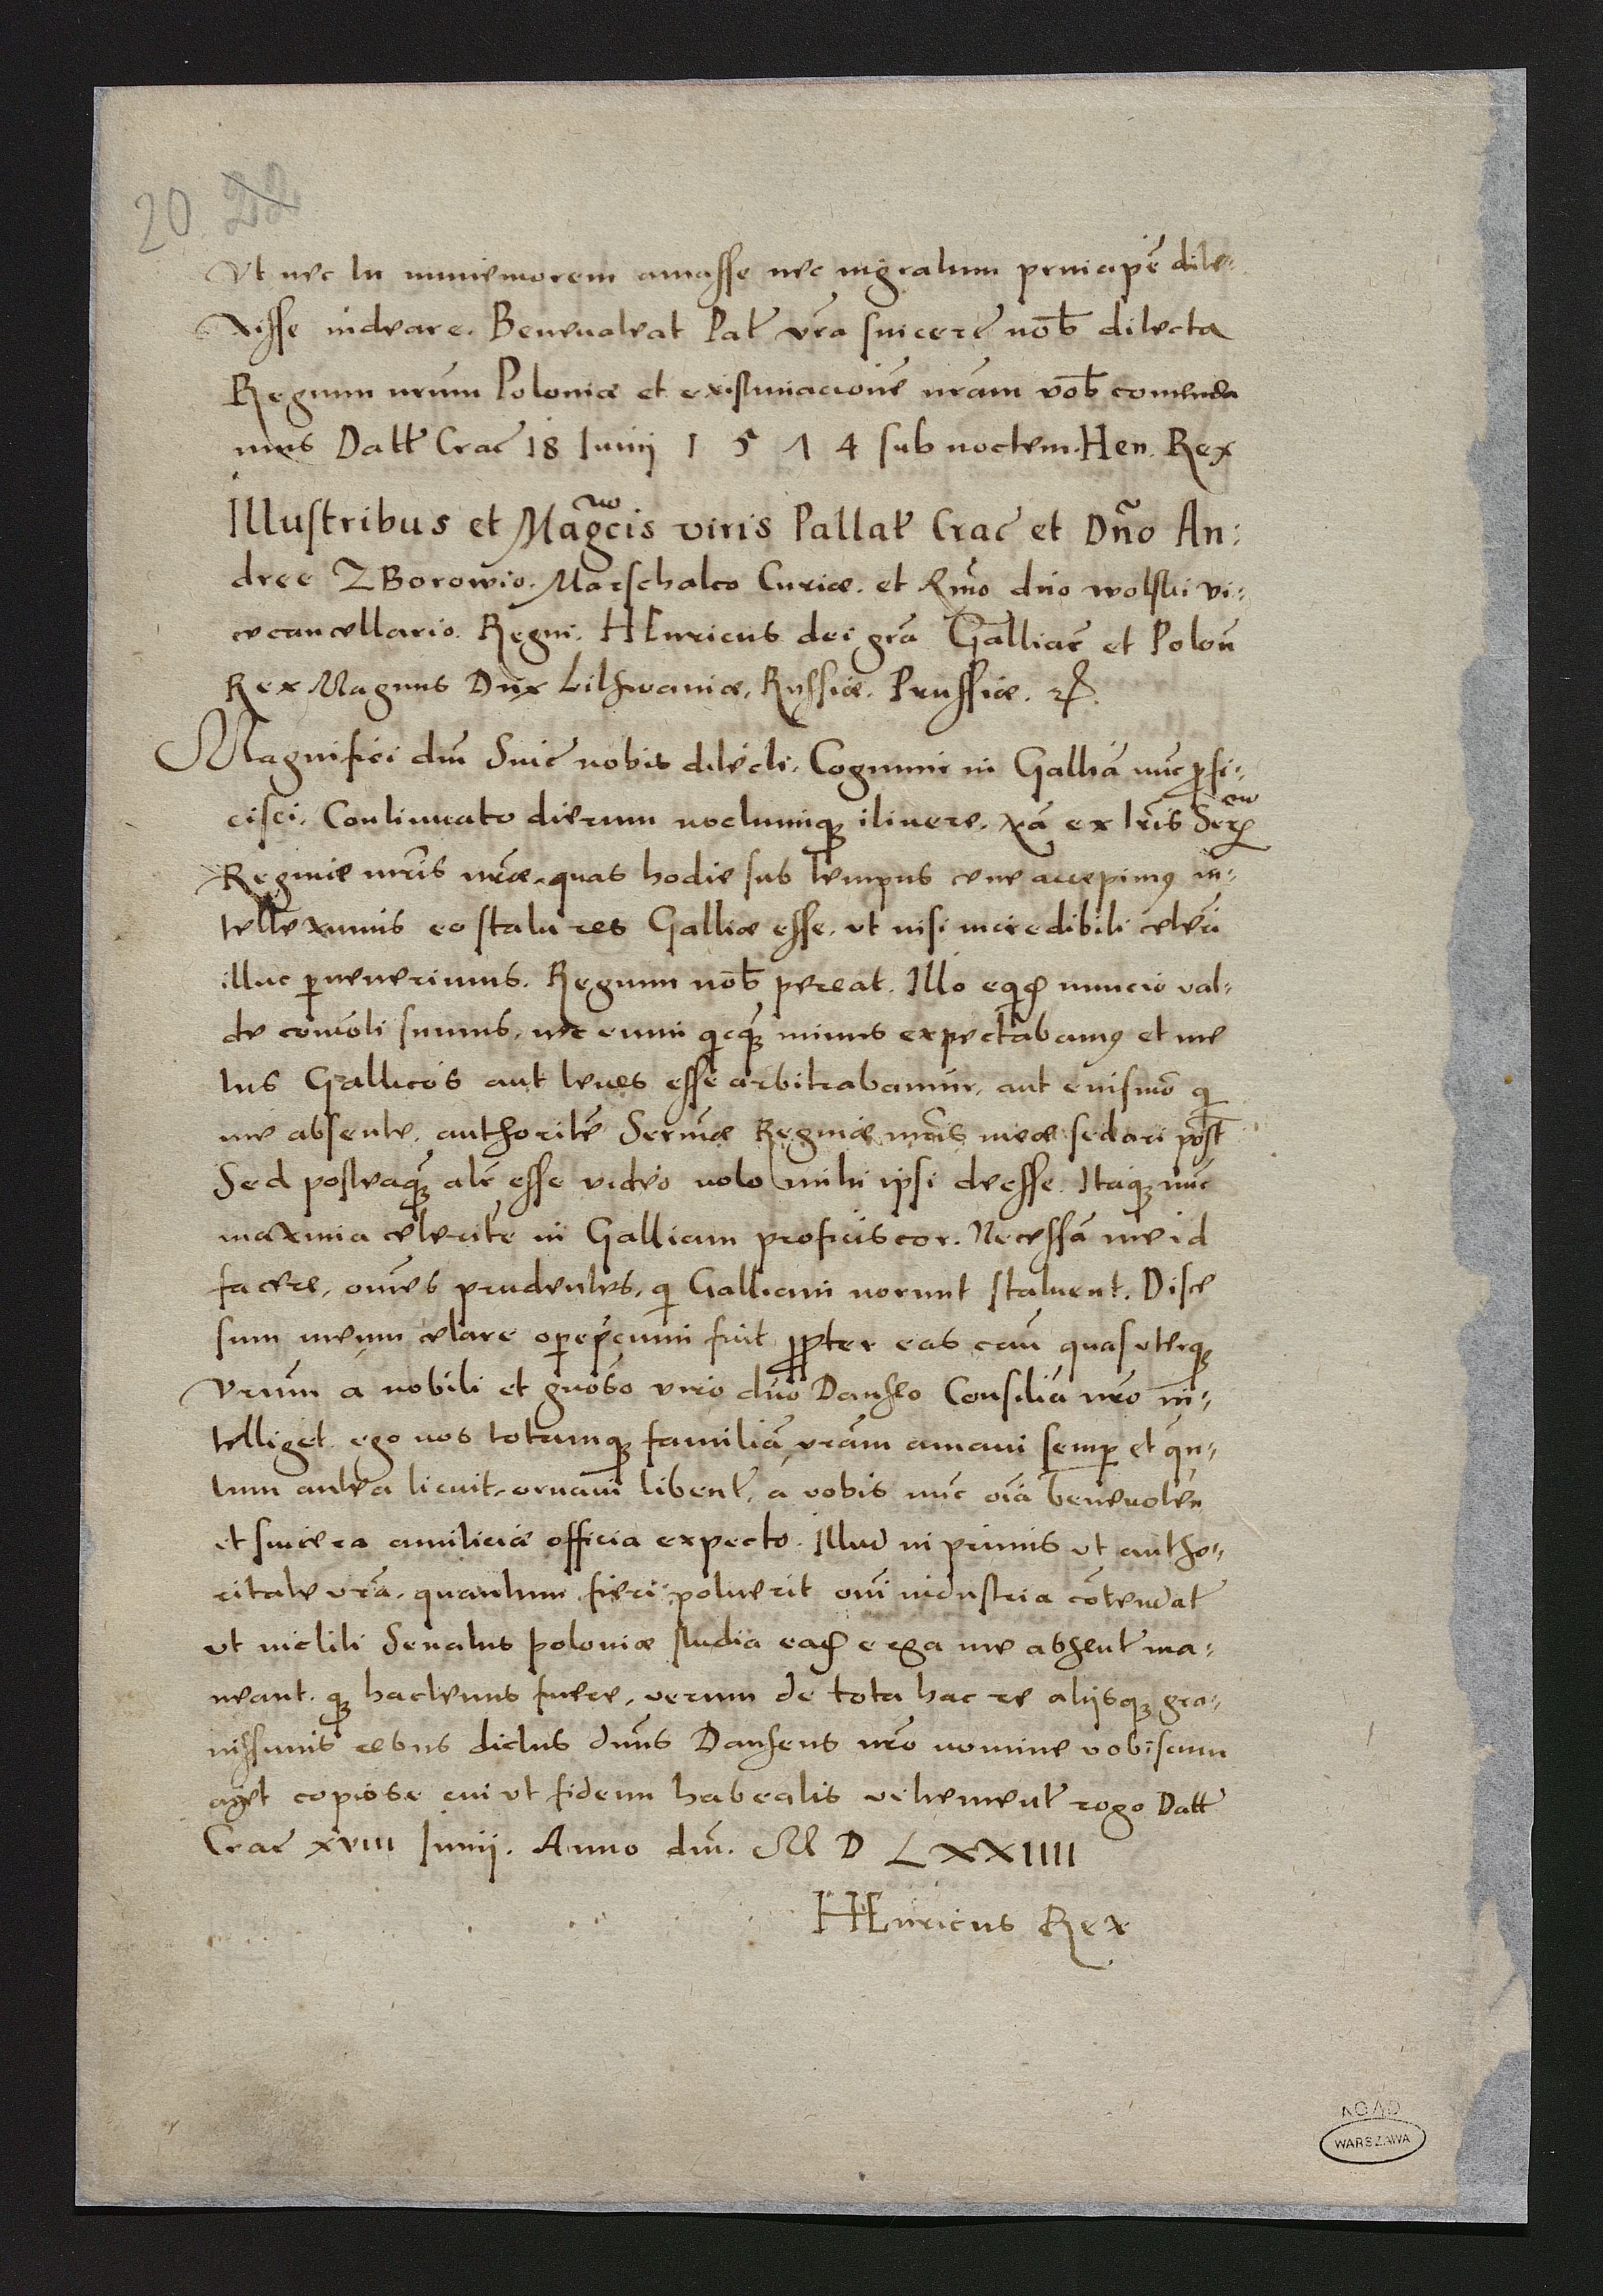 20 22
Vt nec tu immemorem amasse nec ingratum principē dile-
xisse uideare. Beneualeat Pať vrā sincere nob̄ dilecta
Regnum nrūm Poloniæ et existimacionē nrām vob̄ comenda
mus Datt Crac̄ 18 Iunij 1 5 7 4 sub noctem. Hen. Rex
Illustribus et Magcis viris Pallať Crac̄ et Dn̄o An:
dree ZBorowio. Marschalco Curiæ. et Rm̄o dn̄o wolski vi-
cecancellario. Regni. HEnricus dei grā Galliar̄ et Polon̄
Rex Magnus Dux Lithwaniæ, Russiæ. Prussiæ. &c.
Magnifici dn̄i Sinc̄ nobis dilecti. Cogimur in Galliā nūc profi-
cisci. Continuato dierum noctiumq; itinere. Nā ex lrīs Ser
Reginæ mrīs nrāe. quas hodie sub tempus cene accepim9 in-
telleximus eo statu res Galliæ esse. vt nisi incredibili celeri
illuc perueneriimus. Regnum nob̄ pereat. Illo eqd nuncio val-
de com̄oti sumus. nec enim qicq; minus expectabam9 et me
tus Gallicos aut leues esse arbitrabamur. aut eiusmo qi
me absente. authoritē Serm̄æ Reginæ mrīs meæ sedari post̄
Sed posteaq; alr̄ esse video nolo mihi ipsi deesse. Itaq; nūc
maxima celeritē in Galliam proficiscor. Necessā me id
facere, om̄es prudentes. qi Galliam norunt statuent. Disce
sum meum celare operepcium fuit propter eas cau̇ quas vterq;
vrūm a nobili et gnōso viro dn̄o Danseo Consiliā nrō in-
telliget. ego vos totamq; familiā vrām amaui semp et qn-
tum antea licuit ornaui libenť. a vobis nūc oīa beneuolen
et sincera amiliciæ officia expecto. Illud in primis vt autho-
ritate vrā. quantum fieri poluerit om̄i industria cōtendať
vt incliti Senatus poloniæ studia ead erga me absenť ma-
neant. q; hactenus fuere, verum de tota hac re alijsq; gra-
uissimis rebus dictus dn̄us Danseus nrō nomine vobiscum
aget copiose cui vt fidem habeatis vehemenť rogo Datt
Crac̄ xviii Iunij. Anno dn̄i. M D LXXIIII
HEnricus Rex
AGAD
WARSZAWA